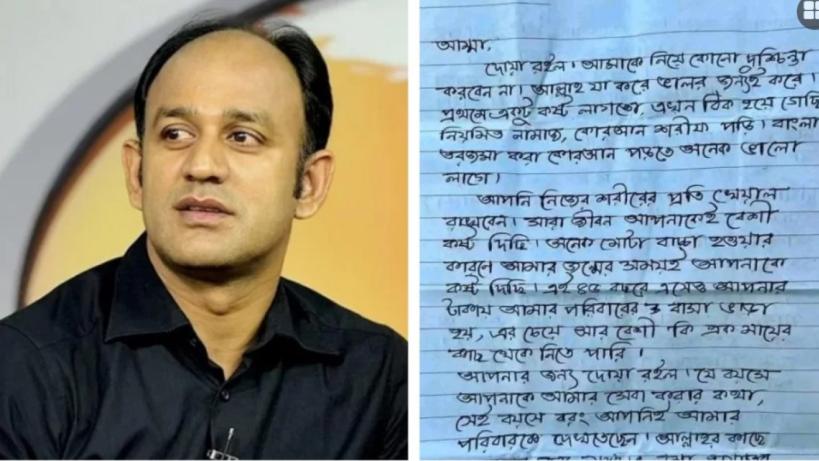 আম্মা,
দোয়া রইল। আমাকে নিয়ে কোনো দুশ্চিন্তা
করবেন না। আল্লাহ যা করে ভালর জন্যই করে।
প্রথমে একটু কষ্ট লাগতো, এখন ঠিক হয়ে গেছি
নিয়মিত নামাজ, কোরআন শরীফ পড়ি। বাংলা
তরজমা করা কোরআন পড়তে অনেক ভালো
লাগে।
আপনি নিজের শরীরের প্রতি খেয়াল
রাখবেন। সারা জীবন আপনাকেই বেশী
কষ্ট দিছি। অনেক মোটা বাচ্চা হওয়ার
কারনে আমার জন্মের সময়ই আপনাকে
কষ্ট দিছি। এই ৪৫ বছরে এসেও আপনার
টাকায় আমার পরিবারের ও বাসা ভাড়া
হয়, এর চেয়ে আর বেশী কি এক মায়ের
কাছ থেকে নিতে পারি।
আপনার জন্য দোয়া রইল। যে বয়সে
আপনাকে আমার সেবা করার কথা,
সেই বয়সে বরং আপনিই আমার
পরিবারকে দেখতেছেন। আল্লাহর কাছে